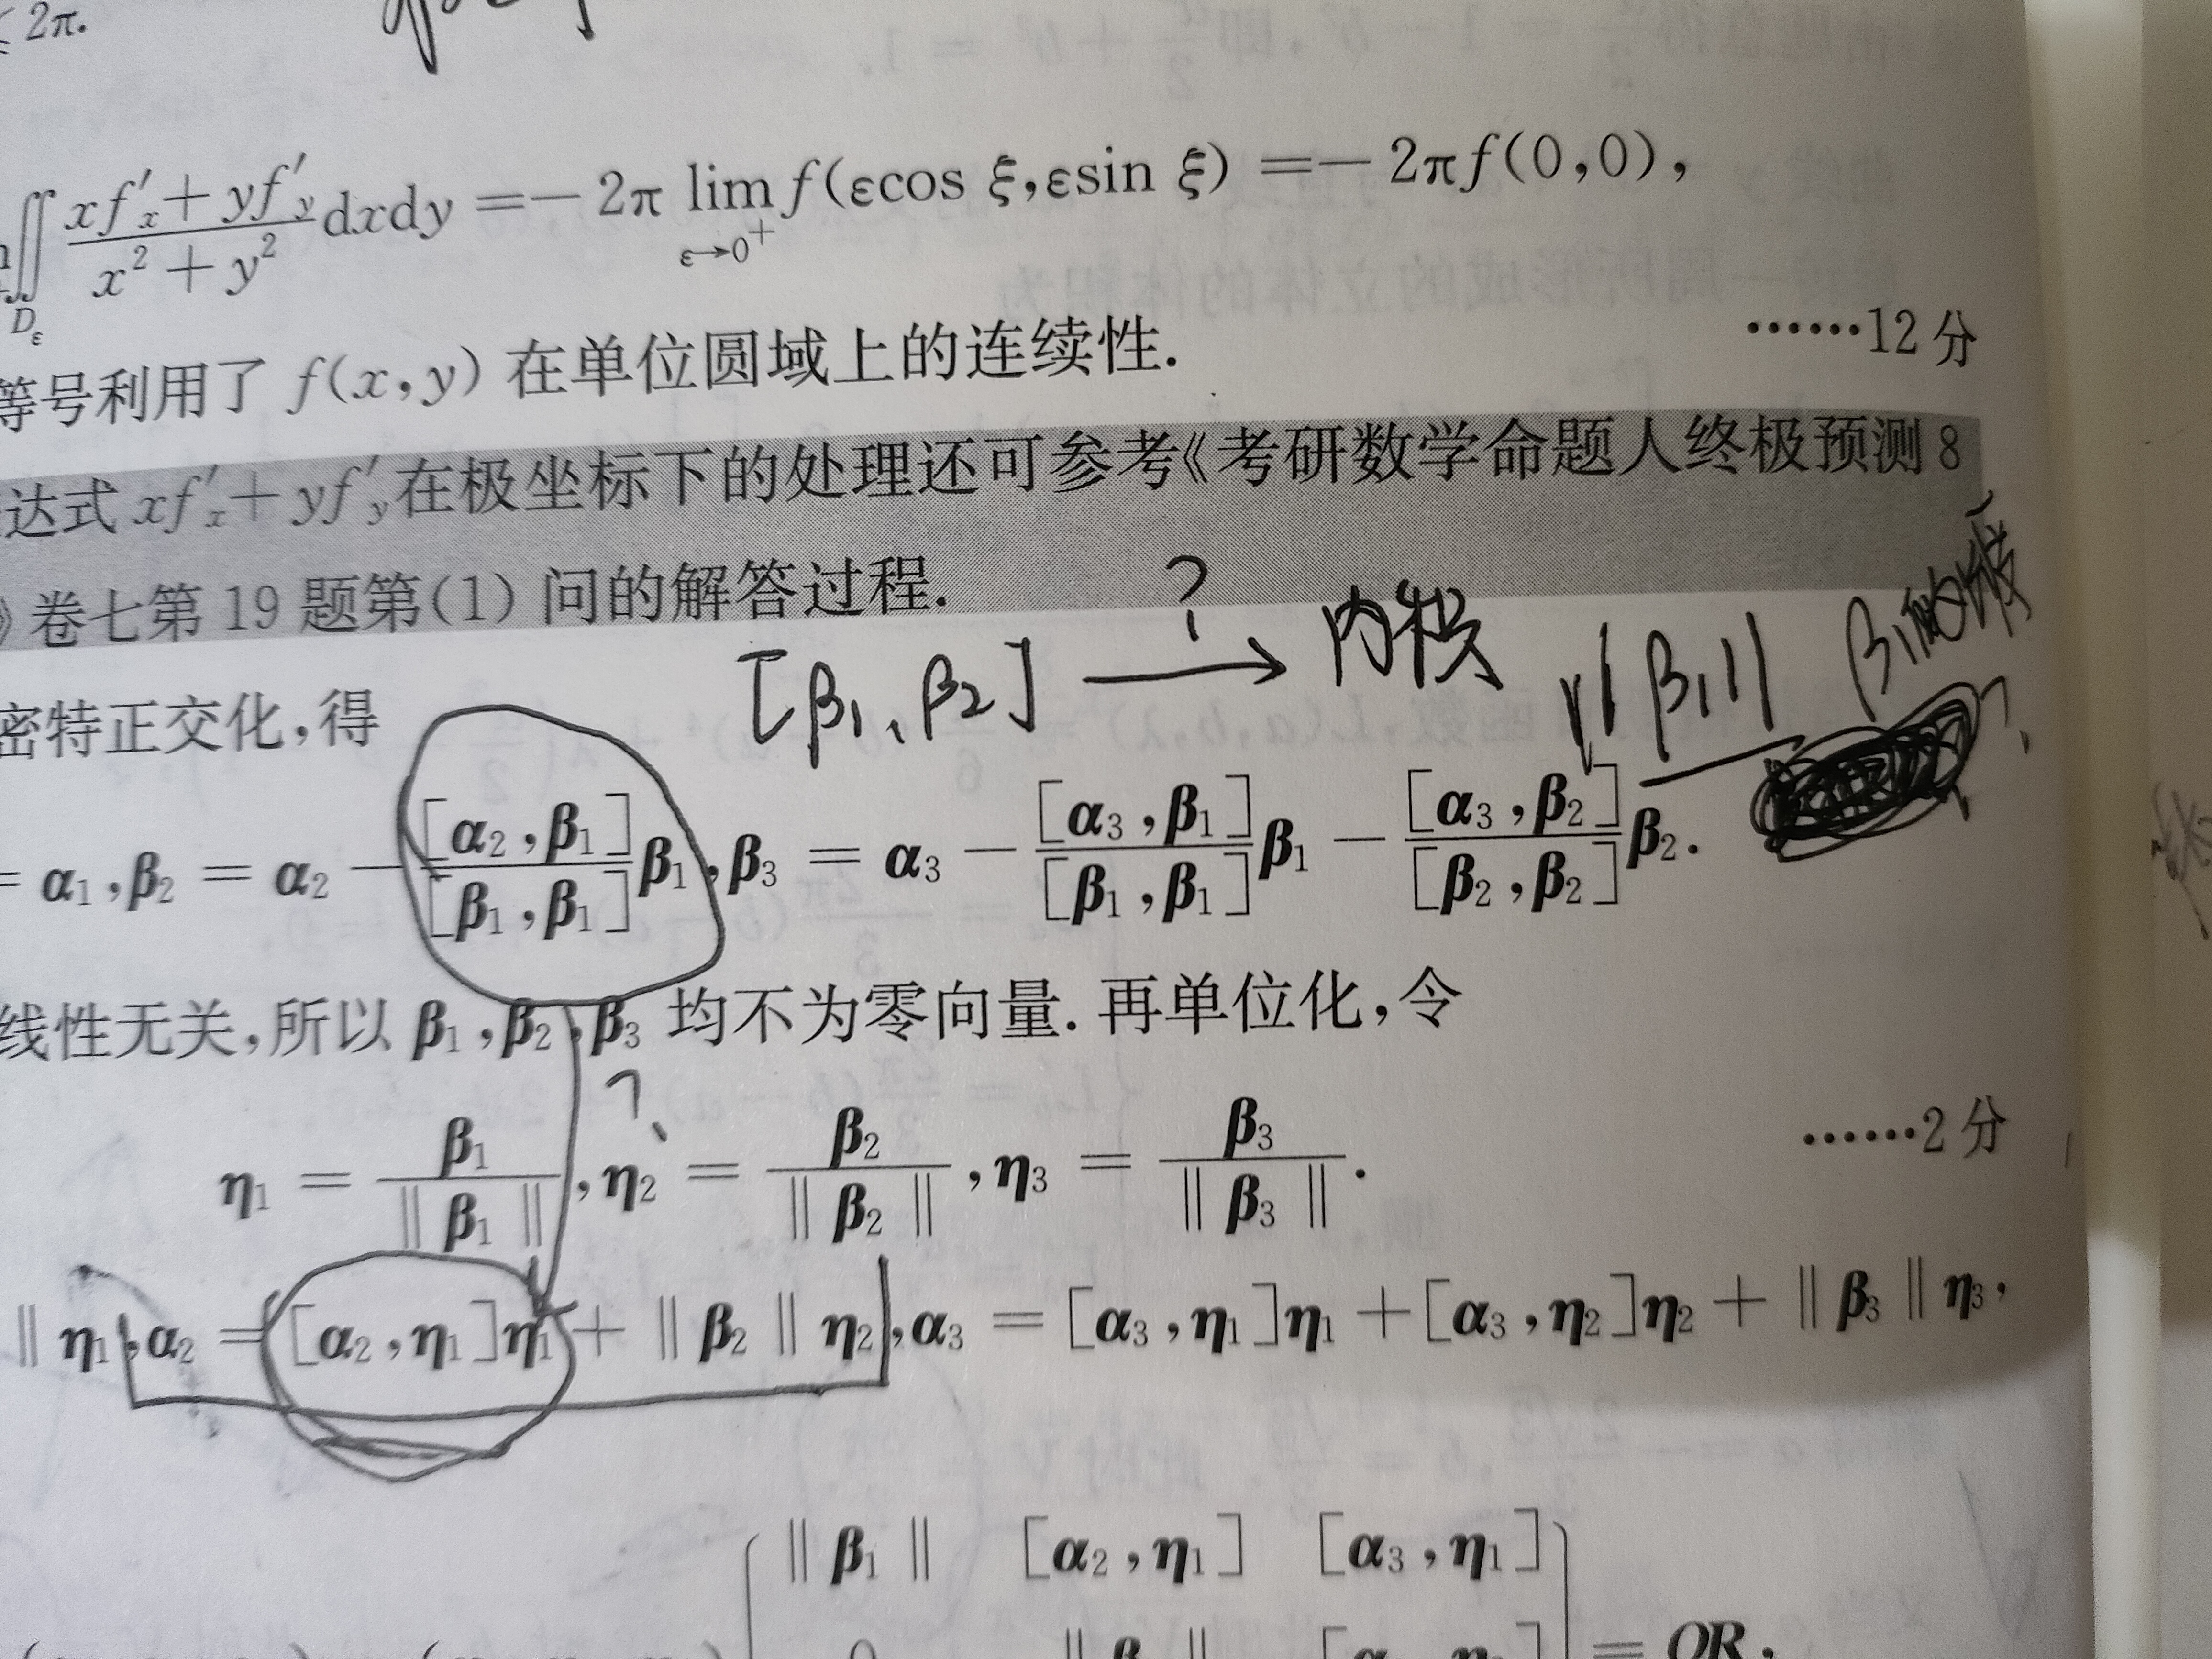 ≤ 2π.
∬_{D_ε} \frac{xf'_x + yf'_y}{x^2 + y^2} dxdy = − 2π \lim_{ε→0^+} f(εcos ξ, εsin ξ) = − 2πf(0,0),
……12分
等号利用了 f(x,y) 在单位圆域上的连续性.
达式 xf'_x + yf'_y 在极坐标下的处理还可参考《考研数学命题人终极预测 8
》卷七第 19 题第(1) 问的解答过程.
[β₁、β₂] ⟶ ? 内积 ||β₁|| β₁的
密特正交化,得
= α₁, β₂ = α₂ − \frac{[α₂, β₁]}{[β₁, β₁]}β₁, β₃ = α₃ − \frac{[α₃, β₁]}{[β₁, β₁]}β₁ − \frac{[α₃, β₂]}{[β₂, β₂]}β₂.
线性无关,所以 β₁, β₂, β₃ 均不为零向量. 再单位化,令
?
η₁ = \frac{β₁}{‖β₁‖}, η₂ = \frac{β₂}{‖β₂‖}, η₃ = \frac{β₃}{‖β₃‖}.
……2分
‖ η₁, α₂ = [α₂, η₁]η₁ + ‖β₂‖η₂, α₃ = [α₃, η₁]η₁ + [α₃, η₂]η₂ + ‖β₃‖η₃,
‖β₁‖ [α₂, η₁] [α₃, η₁]
= QR,